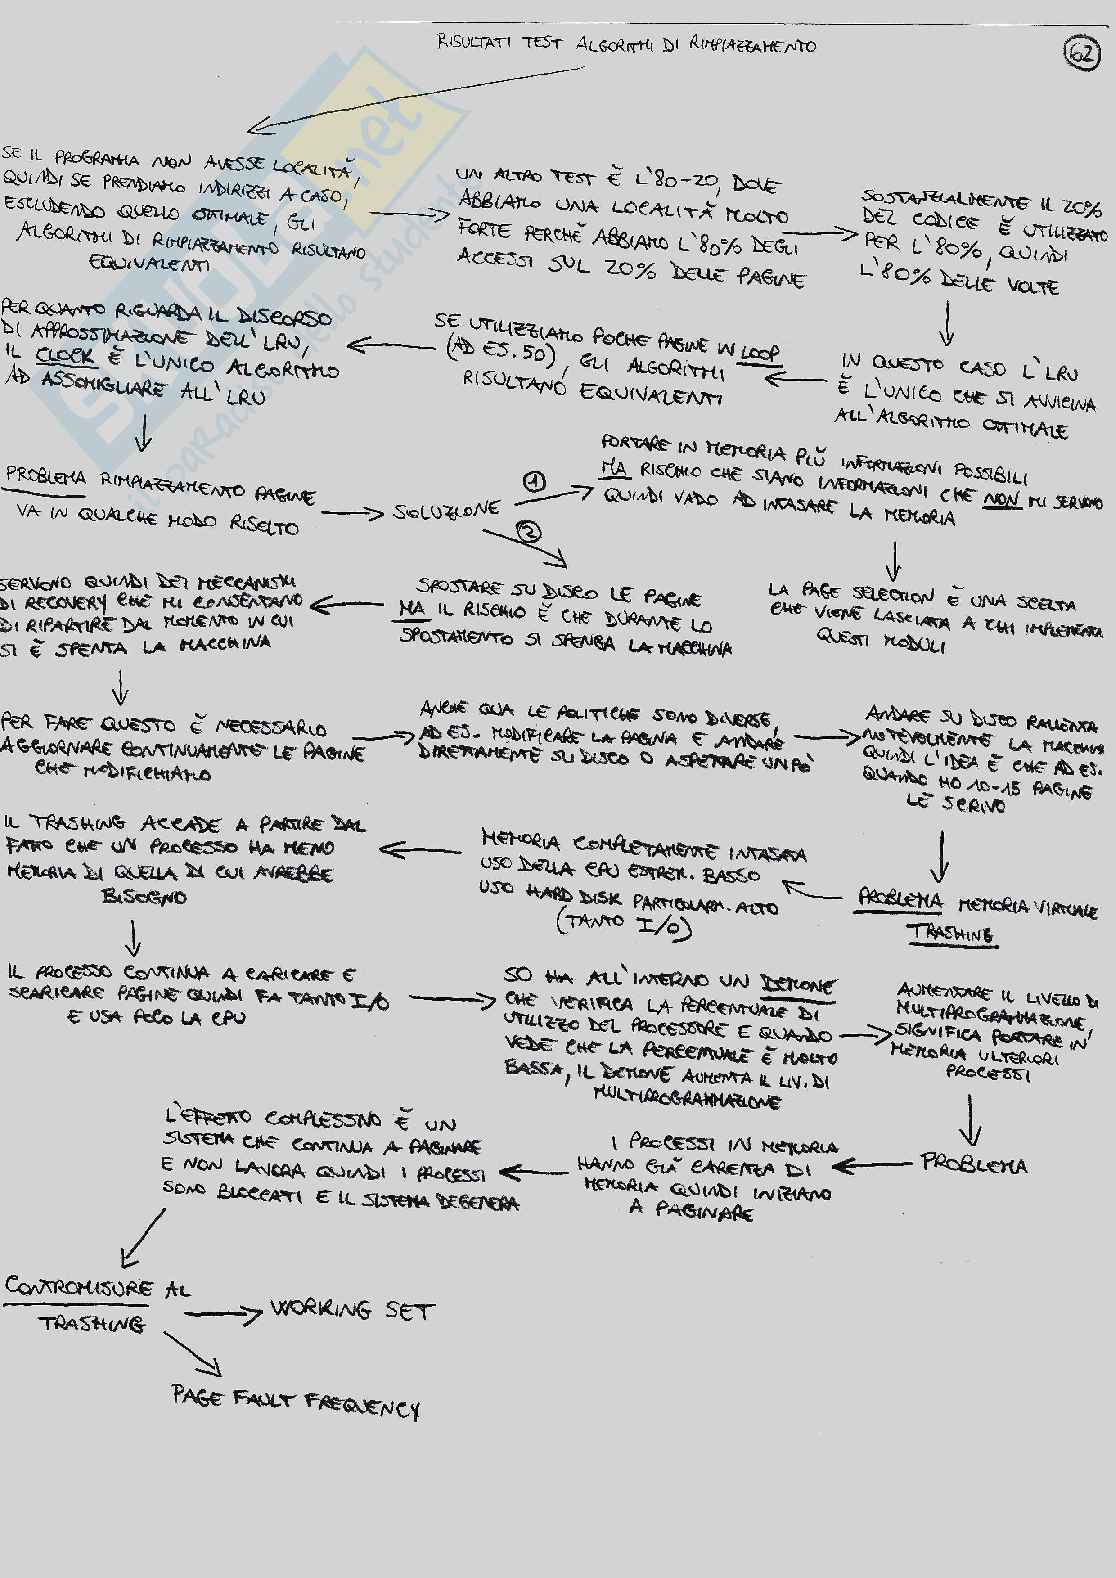 RISULTATI TEST ALGORITMI DI RIMPIAZZAMENTO
62
SE IL PROGRAMMA NON AVESSE LOCALITÀ,
QUINDI SE PRENDIAMO INDIRIZZI A CASO,
ESCLUDENDO QUELLO OTTIMALE, GLI
ALGORITMI DI RIMPIAZZAMENTO RISULTANO
EQUIVALENTI
UN ALTRO TEST È L'80-20, DOVE
ABBIAMO UNA LOCALITÀ MOLTO
FORTE PERCHÈ ABBIAMO L'80% DEGLI
ACCESSI SUL 20% DELLE PAGINE
SOSTANZIALMENTE IL 20%
DEL CODICE È UTILIZZATO
PER L'80%, QUINDI
L'80% DELLE VOLTE
IN QUESTO CASO L'LRU
È L'UNICO CHE SI AVVICINA
ALL'ALGORITMO OTTIMALE
SE UTILIZZIAMO POCHE PAGINE IN LOOP
(AD ES. 50), GLI ALGORITMI
RISULTANO EQUIVALENTI
PER QUANTO RIGUARDA IL DISCORSO
DI APPROSSIMAZIONE DELL'LRU,
IL CLOCK È L'UNICO ALGORITMO
AD ASSOMIGLIARE ALL'LRU
PROBLEMA RIMPIAZZAMENTO PAGINE
VA IN QUALCHE MODO RISOLTO
SOLUZIONE
1
PORTARE IN MEMORIA PIÙ INFORMAZIONI POSSIBILI
MA RISCHIO CHE SIANO INFORMAZIONI CHE NON MI SERVONO
QUINDI VADO AD INTASARE LA MEMORIA
LA PAGE SELECTION È UNA SCELTA
CHE VIENE LASCIATA A CHI IMPLEMENTA
QUESTI MODULI
2
SPOSTARE SU DISCO LE PAGINE
MA IL RISCHIO È CHE DURANTE LO
SPOSTAMENTO SI SPENGA LA MACCHINA
SERVONO QUINDI DEI MECCANISMI
DI RECOVERY CHE MI CONSENTANO
DI RIPARTIRE DAL MOMENTO IN CUI
SI È SPENTA LA MACCHINA
PER FARE QUESTO È NECESSARIO
AGGIORNARE CONTINUAMENTE LE PAGINE
CHE MODIFICHIAMO
ANCHE QUA LE POLITICHE SONO DIVERSE,
AD ES. MODIFICARE LA PAGINA E ANDARE
DIRETTAMENTE SU DISCO O ASPETTARE UN PÒ
ANDARE SU DISCO RALLENTA
NOTEVOLMENTE LA MACCHINA
QUINDI L'IDEA È CHE AD ES.
QUANDO HO 10-15 PAGINE
LE SCRIVO
PROBLEMA MEMORIA VIRTUALE
TRASHING
MEMORIA COMPLETAMENTE INTASATA
USO DELLA CPU ESTREM. BASSO
USO HARD DISK PARTICOLARM. ALTO
(TANTO I/O)
IL TRASHING ACCADE A PARTIRE DAL
FATTO CHE UN PROCESSO HA MENO
MEMORIA DI QUELLA DI CUI AVREBBE
BISOGNO
IL PROCESSO CONTINUA A CARICARE E
SCARICARE PAGINE QUINDI FA TANTO I/O
E USA POCO LA CPU
SO HA ALL'INTERNO UN DEMONE
CHE VERIFICA LA PERCENTUALE DI
UTILIZZO DEL PROCESSORE E QUANDO
VEDE CHE LA PERCENTUALE È MOLTO
BASSA, IL DEMONE AUMENTA IL LIV. DI
MULTIPROGRAMMAZIONE
AUMENTARE IL LIVELLO DI
MULTIPROGRAMMAZIONE,
SIGNIFICA PORTARE IN
MEMORIA ULTERIORI
PROCESSI
PROBLEMA
I PROCESSI IN MEMORIA
HANNO GIÀ CARENZA DI
MEMORIA QUINDI INIZIANO
A PAGINARE
L'EFFETTO COMPLESSIVO È UN
SISTEMA CHE CONTINUA A PAGINARE
E NON LAVORA QUINDI I PROCESSI
SONO BLOCCATI E IL SISTEMA DEGENERA
CONTROMISURE AL
TRASHING
WORKING SET
PAGE FAULT FREQUENCY